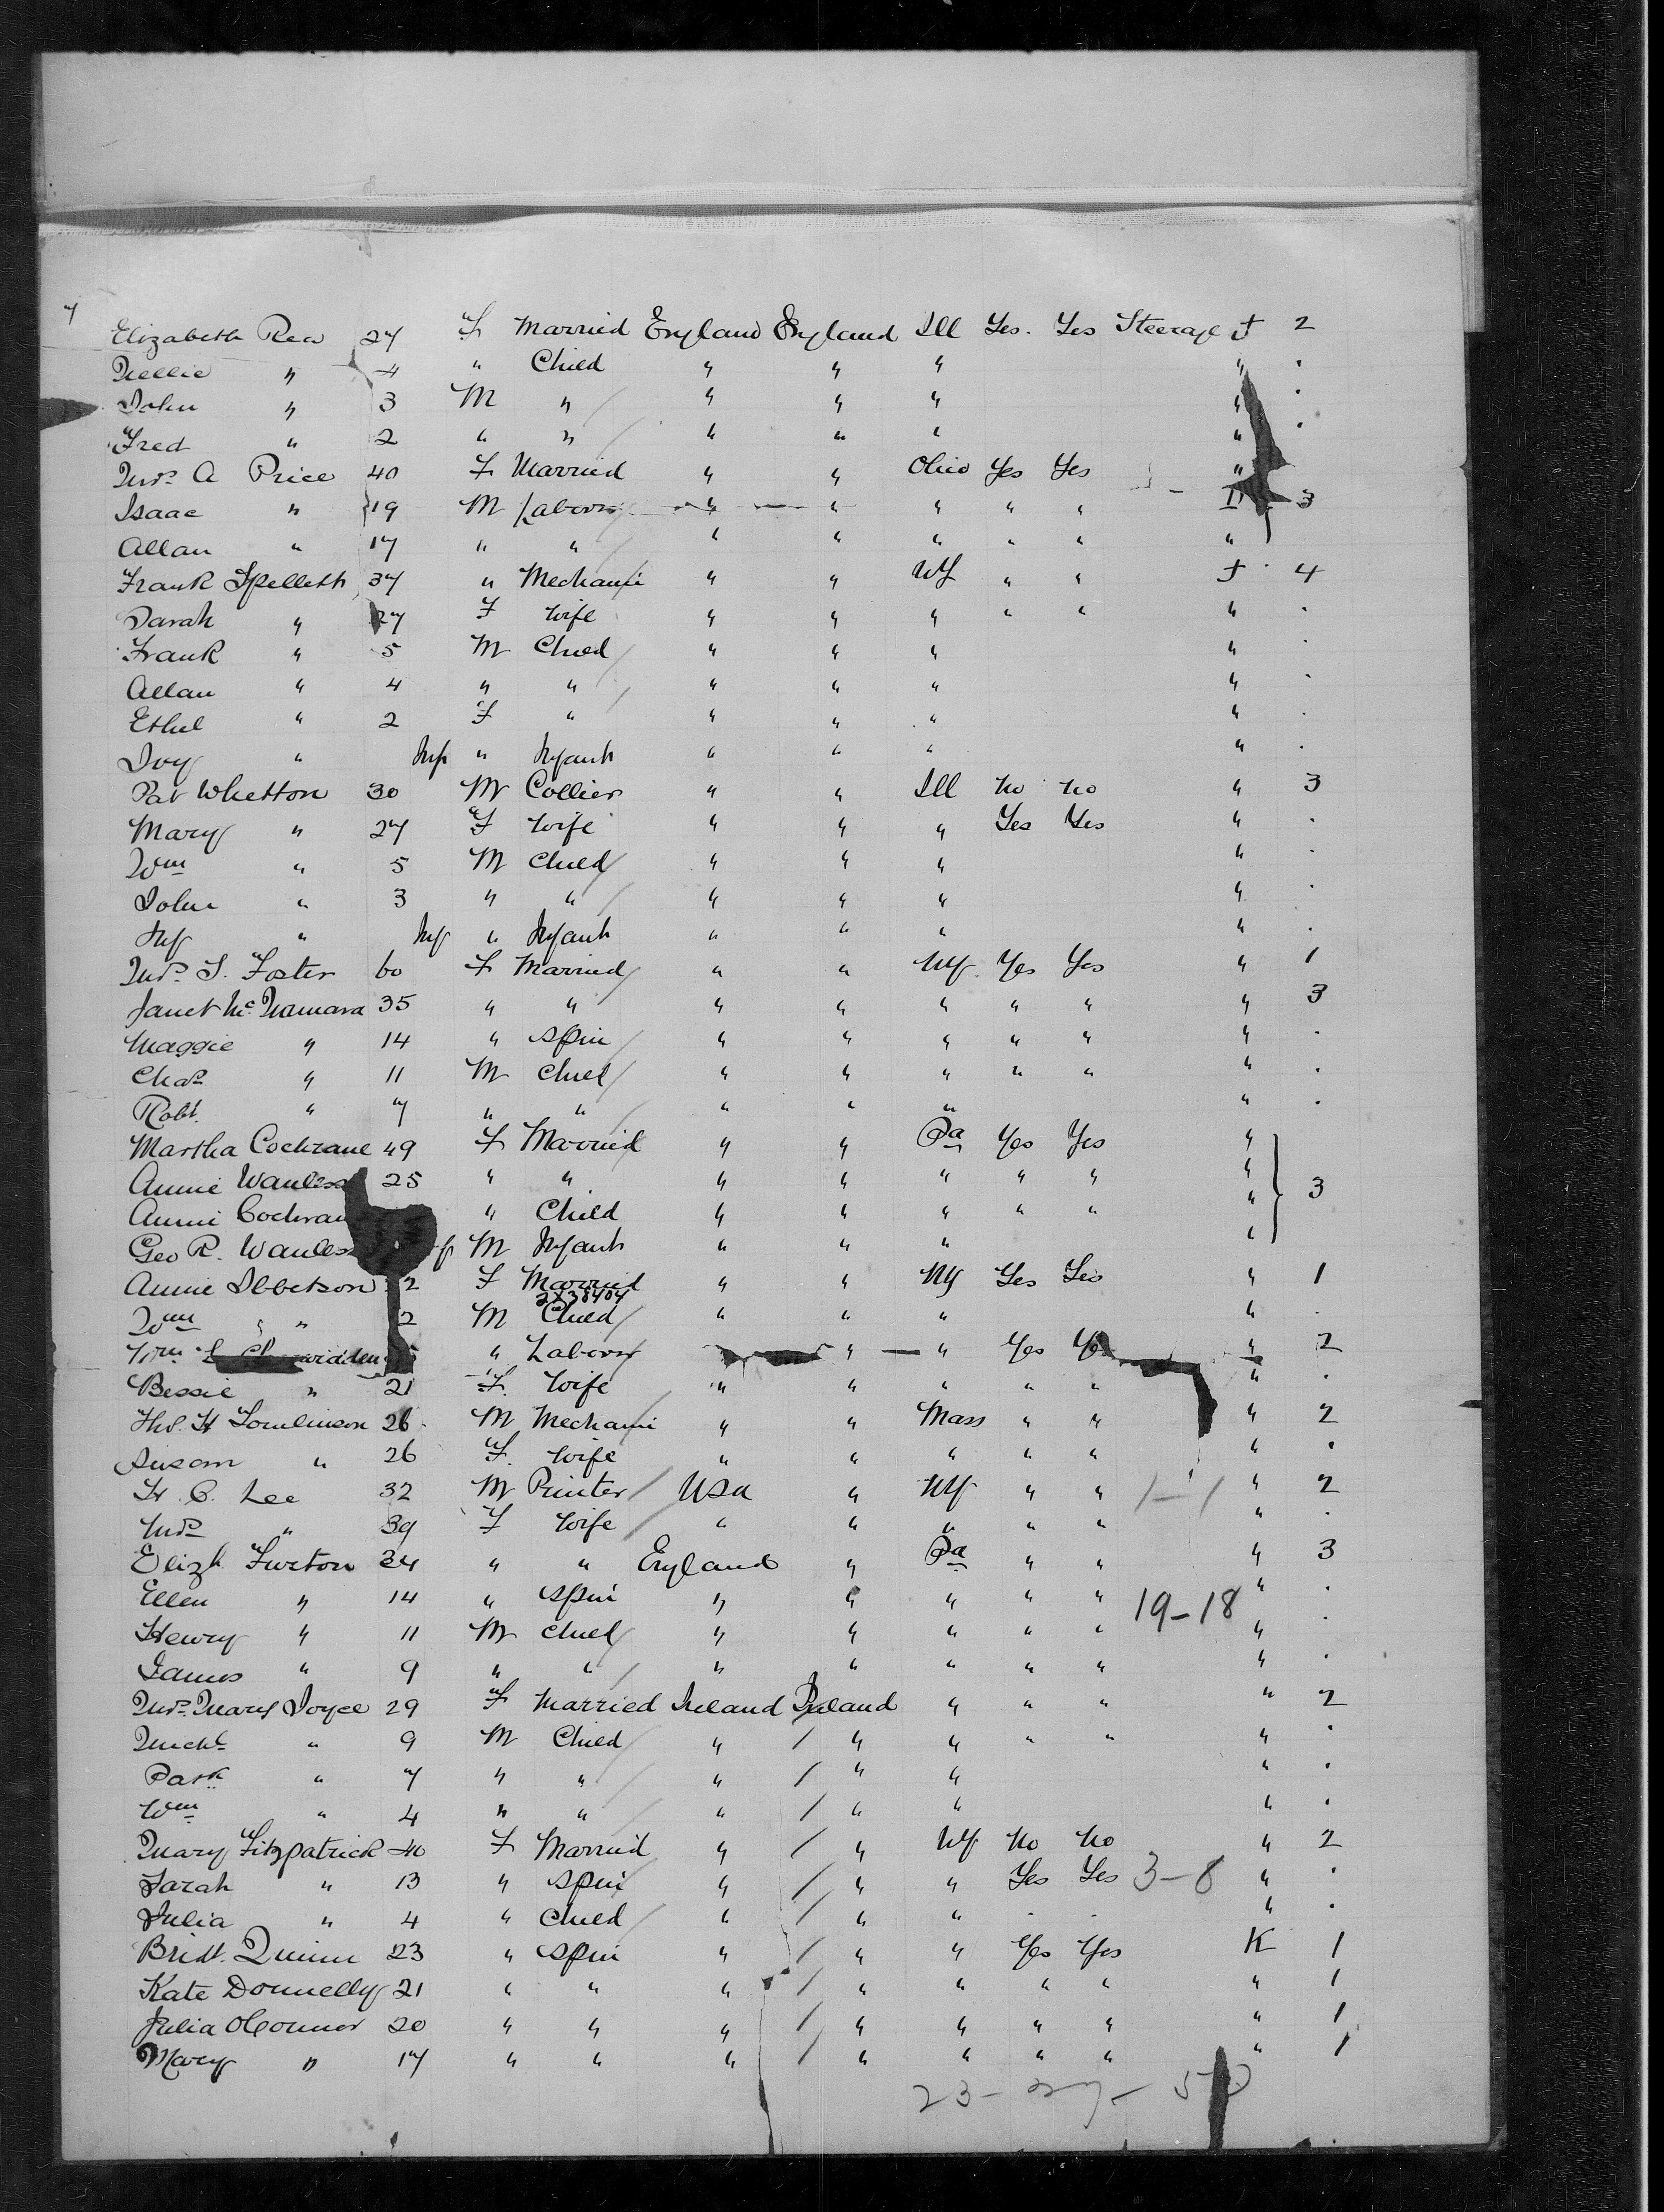 7
Elizabeth Rea 27 F Married England England Ill Yes. Yes Steerage J 2
Nellie " 4 " Child " " " " .
John " 3 M " " " " " .
Fred " 2 " " " " " " .
Mrs A Price 40 F Married " " Ohio Yes Yes "
Isaac " 19 M Laborer " " " " " " 3
Allan " 17 " " " " " " " "
Frank Spelleth 37 " Mechanic " " NY " " J 4
Sarah " 27 F Wife " " " " " " .
Frank " 5 M Child " " " " .
Allan " 4 " " " " " " .
Ethel " 2 F " " " " " .
Ivy " Inf " Infant " " " " .
Pat Whetton 30 M Collier " " Ill No No " 3
Mary " 27 F Wife " " " Yes Yes " .
Wm " 5 M Child " " " " .
John " 3 " " " " " " .
Inf " Inf " Infant " " " " .
Mrs S. Foster 60 F Married " " NY Yes Yes " 1
Janet McNamara 35 " " " " " " " " 3
Maggie " 14 " Spin " " " " " " .
Chas " 11 M Child " " " " " " .
Robt " 7 " " " " " " .
Martha Cochrane 49 F Married " " Pa Yes Yes "
Annie Wanless 25 " " " " " " " " 3
Annie Cochran " Child " " " " " "
Geo R. Wanless M Infant " " " "
Annie Ibbetson 2 F Married " " NY Yes Yes " 1
2X38404
Wm " 2 M Child " " " " .
Wm " Laborer " " Yes Yes " 2
Bessie " 21 F. Wife " " " " " " .
Tho. H Tomlinson 26 M Mechanic " " Mass " " " 2
Susan " 26 F. Wife " " " " " " .
H. C. Lee 32 M Printer USA " NY " " 1-1 " 2
Mrs " 39 F Wife " " " " " " .
Elizh Furton 34 " " England " Pa " " " 3
Ellen " 14 " Spin " " " " " 19-18 " .
Henry " 11 M Child " " " " " " .
James " 9 " " " " " " " " .
Mrs Mary Joyce 29 F Married Ireland Ireland " " " " 2
Michl " 9 M Child " " " " " " .
Patk " 7 " " " " " " .
Wm " 4 " " " " " " .
Mary Fitzpatrick 40 F Married " " NY No No " 2
Sarah " 13 " Spin " " " Yes Yes 3-8 " .
Julia " 4 " Child " " " . . " .
Bridt. Quinn 23 " Spin " " " Yes Yes K 1
Kate Donnelly 21 " " " " " " " " 1
Julia OConnor 20 " " " " " " " " 1
Mary " 17 " " " " " " " " 1
23-